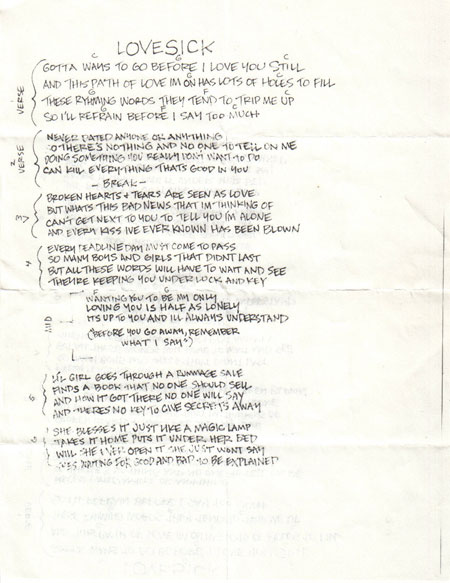 LOVESICK
C G C
GOTTA WAYS TO GO BEFORE I LOVE YOU STILL
G C
AND THIS PATH OF LOVE IM ON HAS LOTS OF HOLES TO FILL
G F C
THESE RYHMING WORDS THEY TEND TO TRIP ME UP
G F C
SO I'LL REFRAIN BEFORE I SAY TOO MUCH
VERSE
NEVER DATED ANYONE OR ANYTHING
SO THERE'S NOTHING AND NO ONE TO TELL ON ME
DOING SOMETHING YOU REALLY DON'T WANT TO DO
CAN KILL EVERYTHING THAT'S GOOD IN YOU
2 VERSE
- BREAK -
BROKEN HEARTS + TEARS ARE SEEN AS LOVE
BUT WHATS THIS BAD NEWS THAT IM THINKING OF
CAN'T GET NEXT TO YOU TO TELL YOU I'M ALONE
AND EVERY KISS IVE EVER KNOWN HAS BEEN BLOWN
3
EVERY DEADLINE DAY MUST COME TO PASS
SO MANY BOYS AND GIRLS THAT DIDNT LAST
BUT ALL THESE WORDS WILL HAVE TO WAIT AND SEE
THEIRE KEEPING YOU UNDER LOCK AND KEY
4
F C
WANTING YOU TO BE MY ONLY
LOVING YOU IS HALF AS LONELY
ITS UP TO YOU AND ILL ALWAYS UNDERSTAND
("BEFORE YOU GO AWAY, REMEMBER
WHAT I SAY")
MID
LI'L GIRL GOES THROUGH A RUMMAGE SALE
FINDS A BOOK THAT NO ONE SHOULD SELL
AND HOW IT GOT THERE NO ONE WILL SAY
AND THERE'S NO KEY TO GIVE SECRETS AWAY
5
SHE BLESSES IT JUST LIKE A MAGIC LAMP
TAKES IT HOME PUTS IT UNDER HER BED
WILL SHE EVER OPEN IT SHE JUST WONT SAY
WAITING FOR GOOD AND BAD TO BE EXPLAINED
6